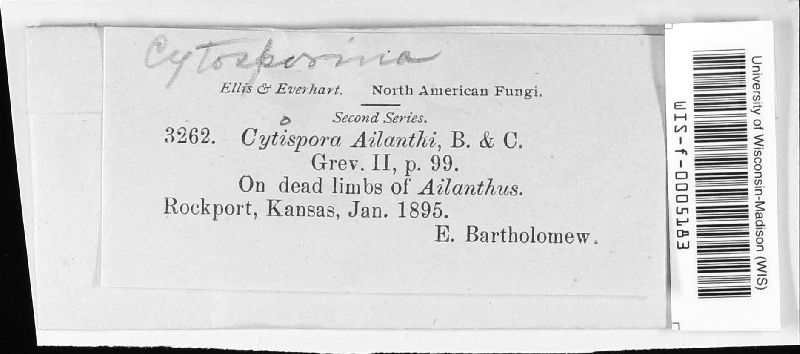 Cytosporina
Ellis & Everhart. North American Fungi.
Second Series.
o
3262. Cytispora Ailanthi, B. & C.
Grev. II, p. 99.
On dead limbs of Ailanthus.
Rockport, Kansas, Jan. 1895.
E. Bartholomew.
University of Wisconsin-Madison (WIS)
WIS-f-0005183